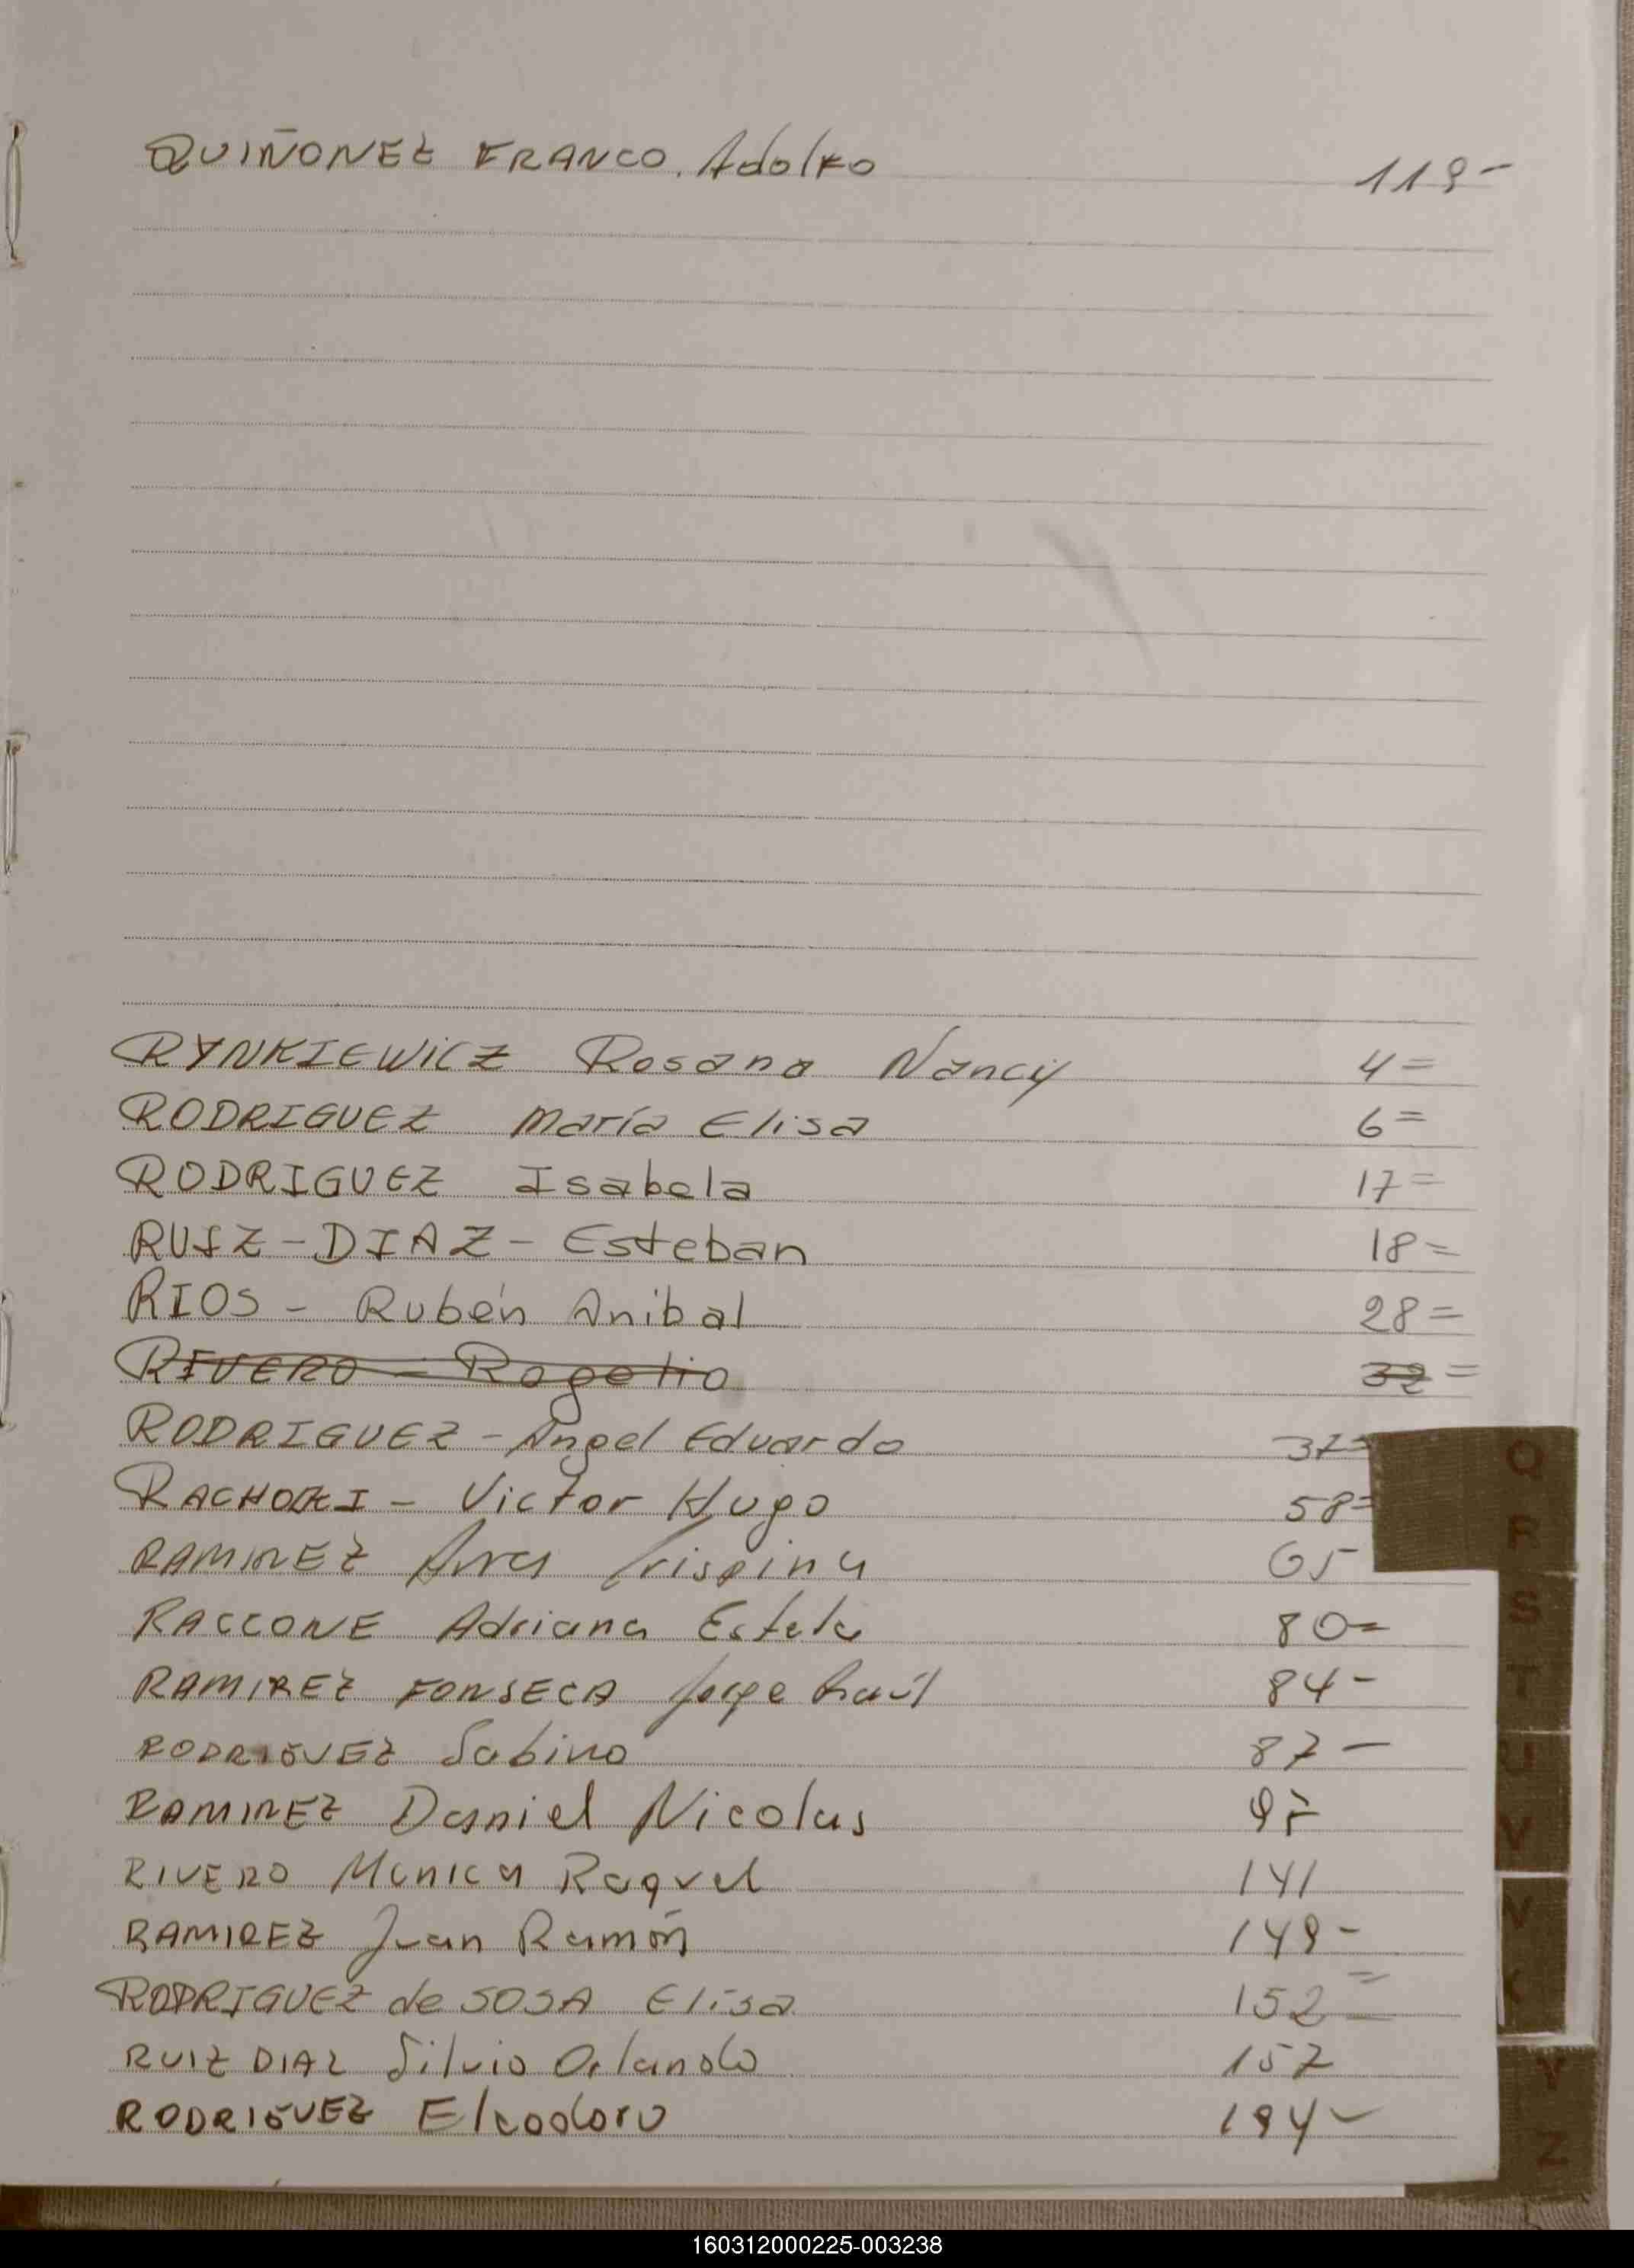 QUIÑONEZ FRANCO, Adolfo 119-
RYNKIEWICZ Rosana Nancy 4=
RODRIGUEZ María Elisa 6=
RODRIGUEZ Isabela 17=
RUIZ-DIAZ- Esteban 18=
RIOS - Rubén Anibal 28=
RIVERO - Rogelio 32=
RODRIGUEZ - Angel Eduardo 37=
Victor Hugo 58=
RAMIREZ Ana Crispina 65
RACCONE Adriana Estela 80=
RAMIREZ FONSECA Jorge Raúl 84-
RODRIGUEZ Sabino 87-
RAMIREZ Daniel Nicolas
RIVERO Monica Raquel 141
RAMIREZ Juan Ramón 149-
RODRIGUEZ de SOSA Elisa 152=
RUIZ DIAZ Silvio Orlando 157
RODRIGUEZ Eleodoro 194-
Q
R
S
T
U
V
Y
Z
160312000225-003238